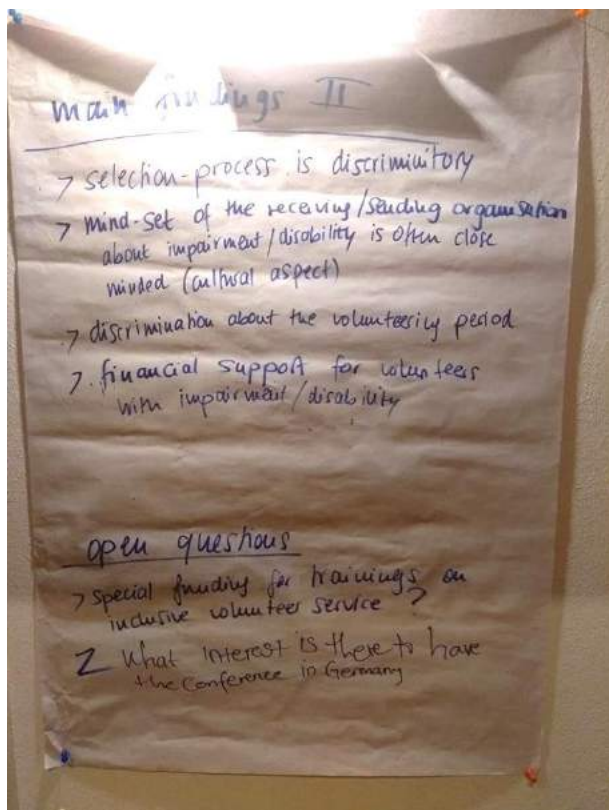 main findings II
> selection-process is discriminitory
> mind-set of the receiving/sending organisation
about impairment/disability is often close
minded (cultural aspect)
> discrimination about the volunteering period
> financial support for volunteers
with impairment/disability
open questions
> special funding for trainings on
inclusive volunteer service ?
> What interest is there to have
the conference in Germany